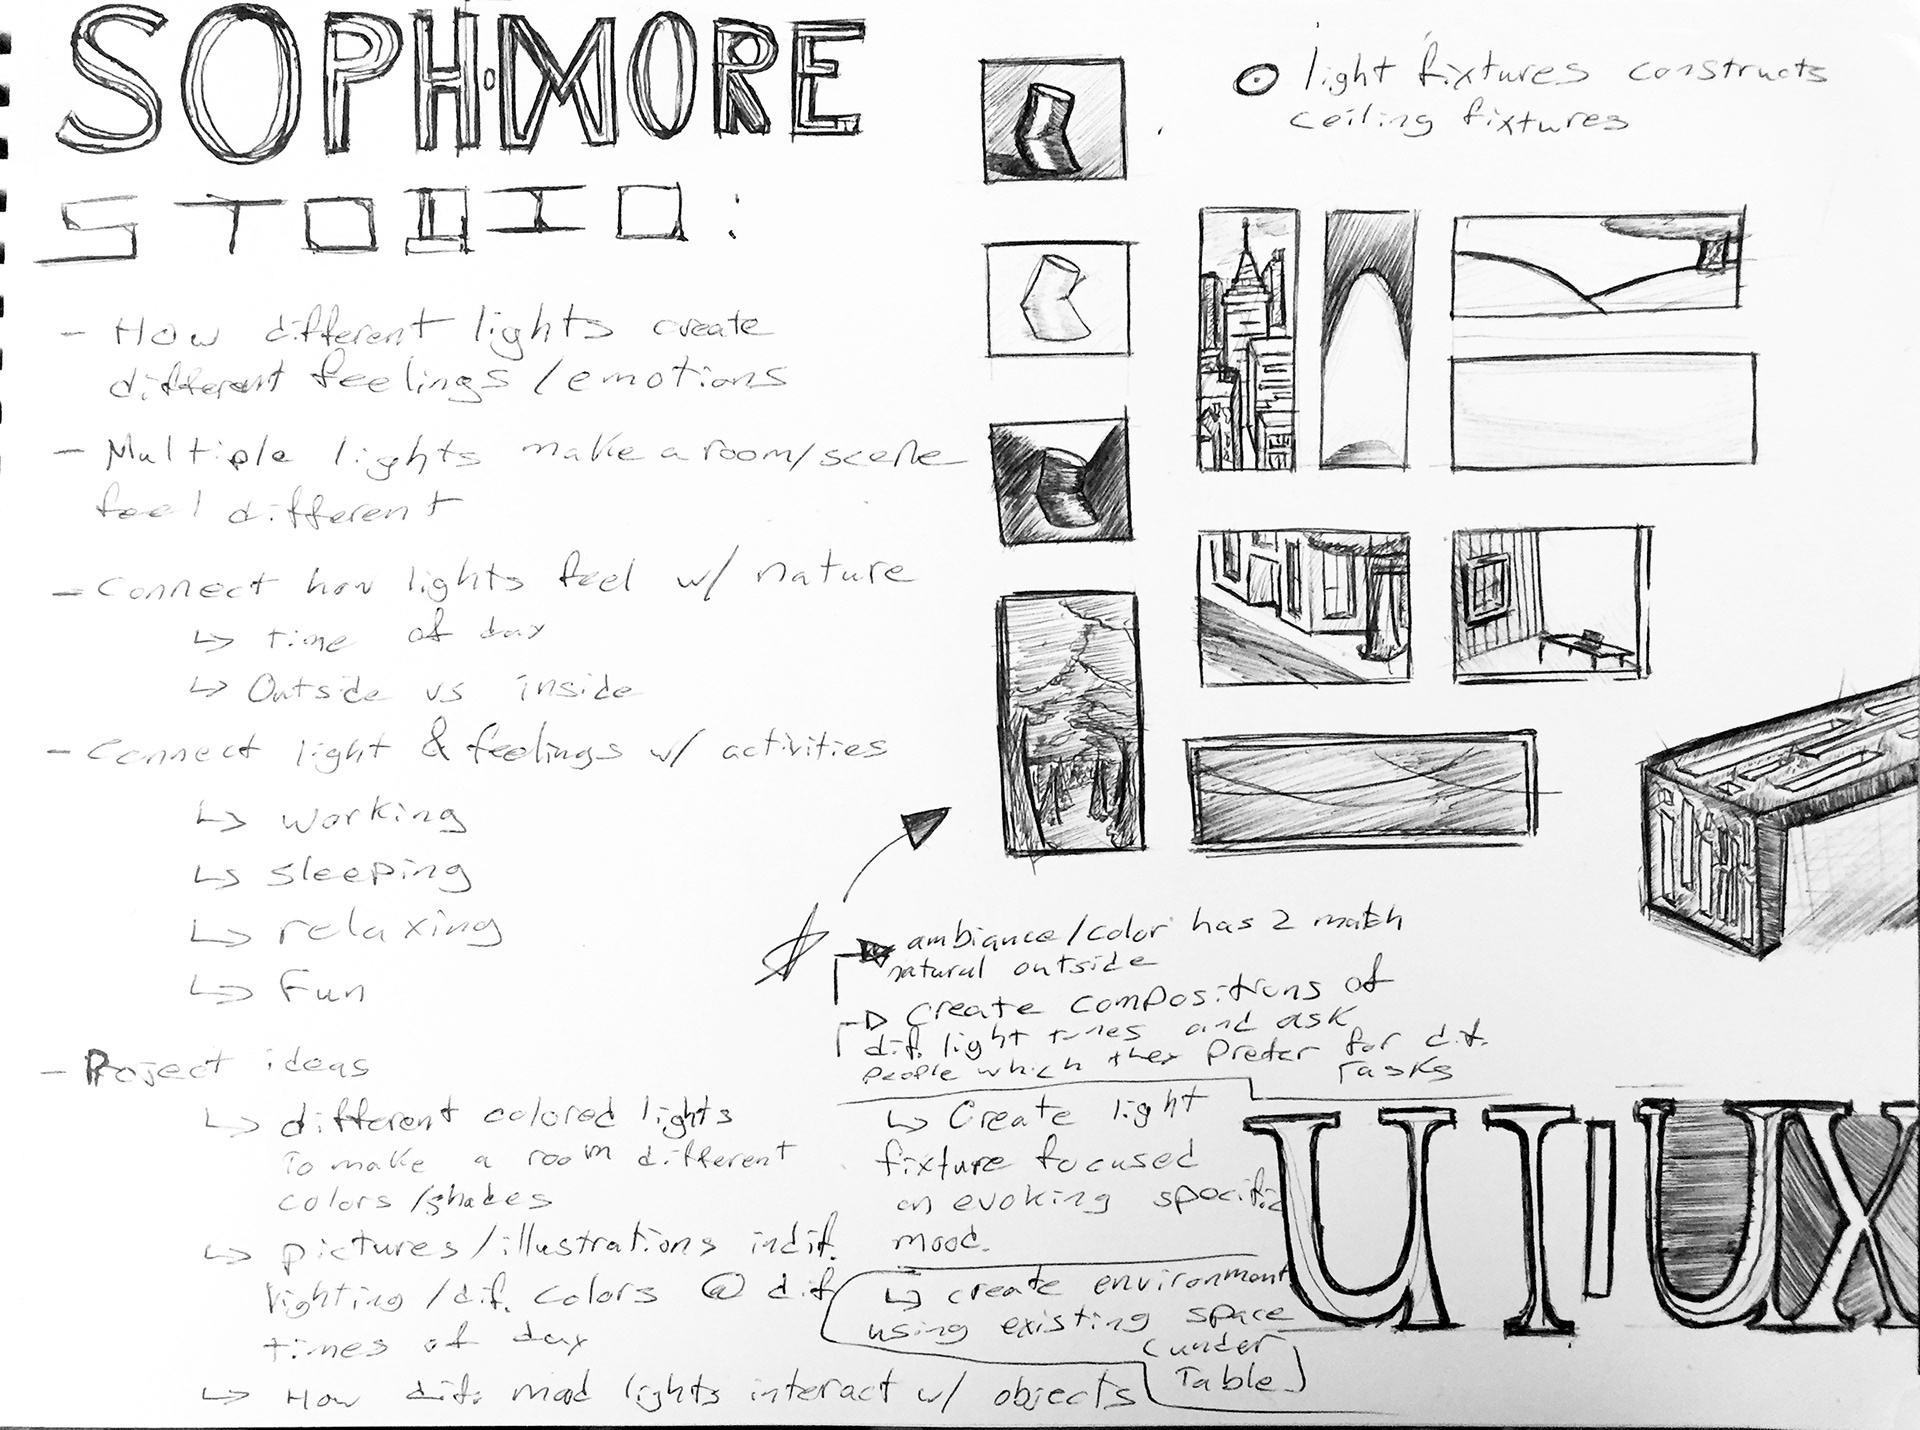 SOPH·MORE
STUDIO:
- How different lights create
different feelings/emotions
- Multiple lights make a room/scene
feel different
- Connect how lights feel w/ nature
↳ time of day
↳ Outside vs inside
- Connect light & feelings w/ activities
↳ working
↳ sleeping
↳ relaxing
↳ fun
- Project ideas
↳ different colored lights
To make a room different
colors/shades
↳ pictures/illustrations in dif.
lighting/dif. colors @ dif
times of day
↳ How dif. mood lights interact w/ objects
light fixtures constructs
ceiling fixtures
ambiance/color has 2 match
natural outside
Create compositions of
dif. light tunes and ask
people which they prefer for dif.
Tasks
↳ Create light
fixture focused
on evoking specific
mood.
↳ create environment
using existing space
(under
Table)
UI|UX